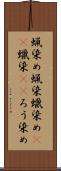 蝋染め蝋染蠟染め
蠟染ろう染め